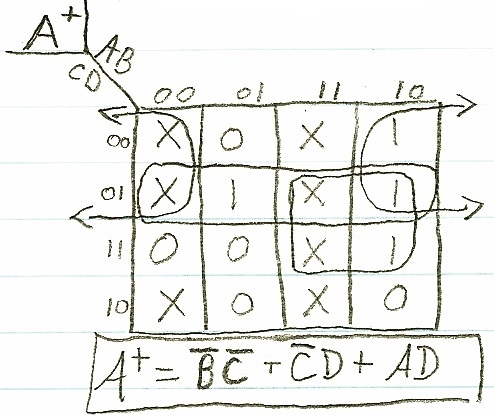 A⁺
AB
CD
00 01 11 10
00 X 0 X 1
01 X 1 X 1
11 0 0 X 1
10 X 0 X 0
A⁺ = B̅ C̅ + C̅ D + AD